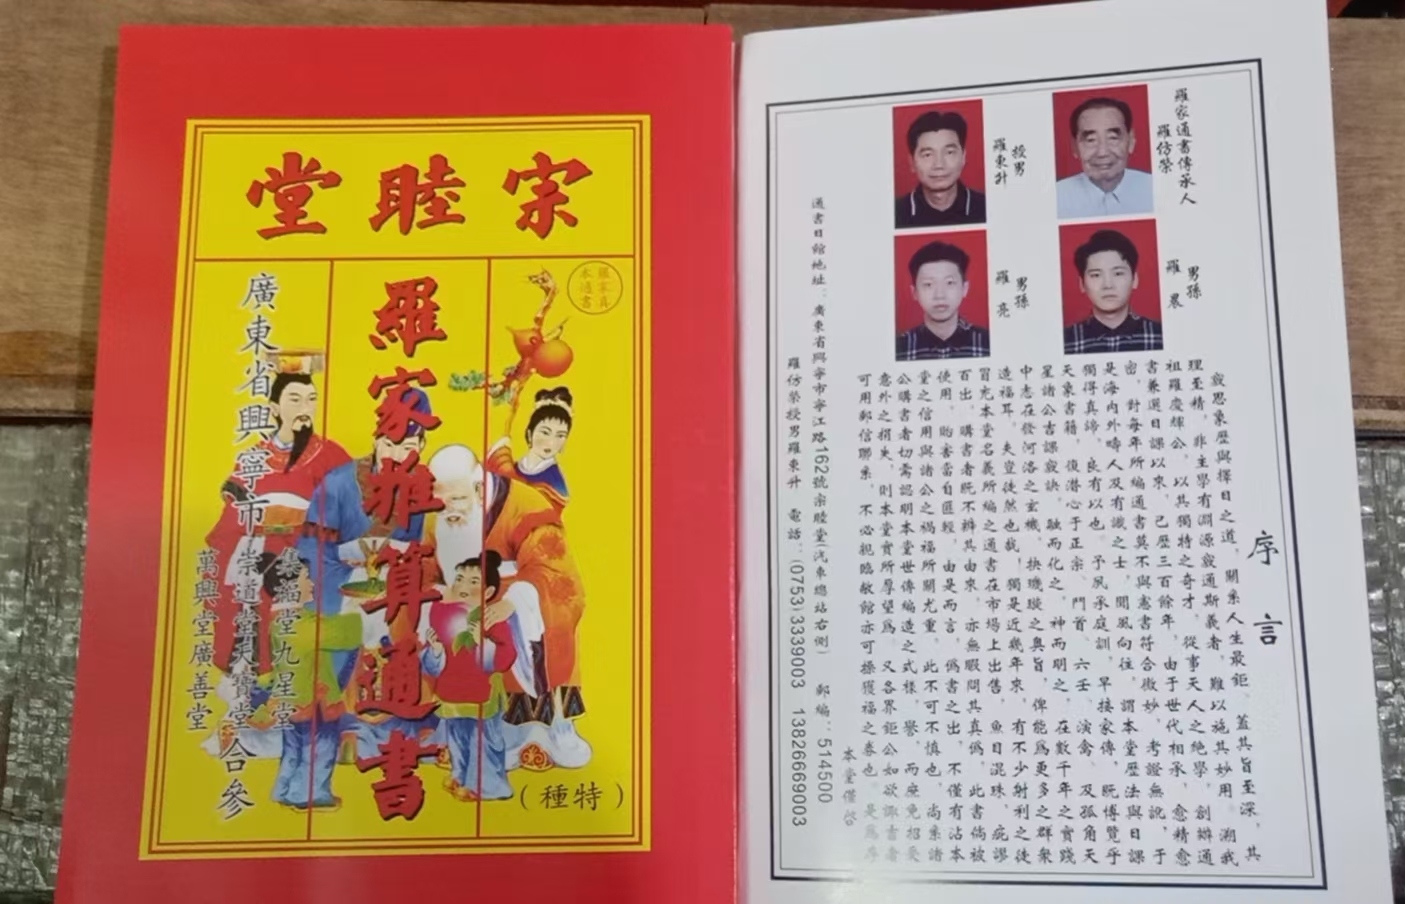 宗睦堂
羅家真本通書
羅家推算通書
(特種)
廣東省興寧市
集福堂九星堂
崇道堂天寶堂合參
萬興堂廣善堂
羅家通書傳承人
羅仿榮
授男
羅東升
男孫
羅晨
男孫
羅亮
序言
竊思象歷與擇日之道，關系人生最鉅。蓋其旨至深，其
理至精，非主學有淵源竅通斯義者，難以施其妙用。溯我
祖羅慶輝公，以其獨特之奇才，從事天人之絕學，創辦通
書兼選日課以來，已歷三百餘年，由于世代相承，愈精愈
密，對每年所編通書莫不與憲書符合微妙，考證無訛，于
是海內外疇人及有識之士，聞風向往，謂本堂歷法與日課
獨得真諦，良有以也。予夙承庭訓，早接家傳，既博覽乎
天象書籍，復潛心于正宗、鬥首、六壬、演禽、及孤角天
星諸公書課竅訣，融而化之，神而明之，在數千年之實踐
中志在發河洛之玄機，抉璣璇之奧旨，俾能爲更多之群衆
造福耳，夫豈徒然也哉，獨是近幾年來，有不少射利之徒
冒充本堂名義所編之通書在市場上出售，魚目混珠，疵謬
百出，購書者既不辨其由來，亦無暇問其真僞，此書倘被
使用，貽害當自匪輕，由是而言，僞書之出，不僅有沾本
堂之信用與諸公之禍福所關尤重，此不可不慎也，尚系諸
公購書者切需認明本堂世傳編造之式樣，譽，而座免招受
意外之損失，則本堂實所厚望爲，又各界鉅公如欲諏吉者
可用郵信聯系，不必犯臨敝館亦可操獲福之券也。是爲序
本堂僅啓
通書日館地址：廣東省興寧市寧江路162號宗睦堂(汽車總站右側) 郵編：514500
羅仿榮授男羅東升 電話：(0753)3339003 13826669003